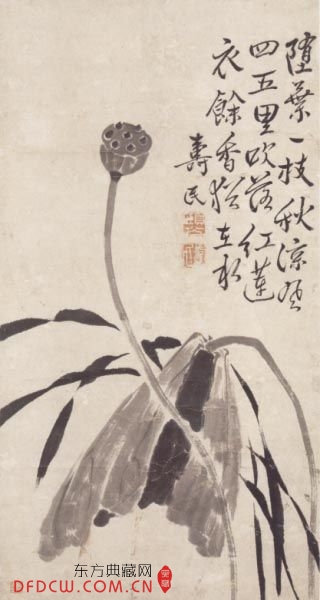 堕葉一枝秋涼風
四五里吹落红蓮
衣餘香猶在水
壽民
东方典藏网
DFDCW.COM.CN